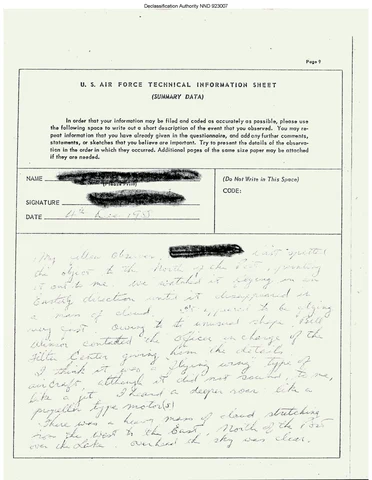 Declassification Authority NND 923007
Page 9
U. S. AIR FORCE TECHNICAL INFORMATION SHEET
(SUMMARY DATA)
In order that your information may be filed and coded as accurately as possible, please use
the following space to write out a short description of the event that you observed. You may re-
peat information that you have already given in the questionnaire, and add any further comments,
statements, or sketches that you believe are important. Try to present the details of the observa-
tion in the order in which they occurred. Additional pages of the same size paper may be attached
if they are needed.
NAME
(Please Print)
(Do Not Write in This Space)
SIGNATURE
CODE:
DATE 1955
My fellow Observer
the object to the North of the Post
it out to me. We watched it flying in an
Easterly direction until it disappeared in
a mass of cloud. It appeared to be flying
very fast. Owing to its unusual shape
contacted the officer in charge of the
Filter Center giving him the details.
I think it was a flying wing type of
aircraft, although it did not sound, to me,
like a jet. I heard a deeper roar like a
propeller type motor(s)
There was a heavy mass of cloud stretching
from the West to the East, North of the Post
over the Lake. Overhead the sky was clear.